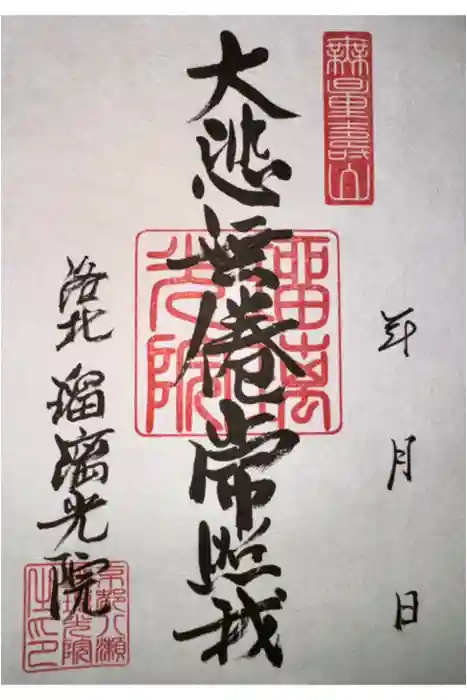 無量壽山
年 月 日
大悲無倦常照我
瑠璃
光院
洛北 瑠璃光院
京都八瀬
瑠璃光院
之印